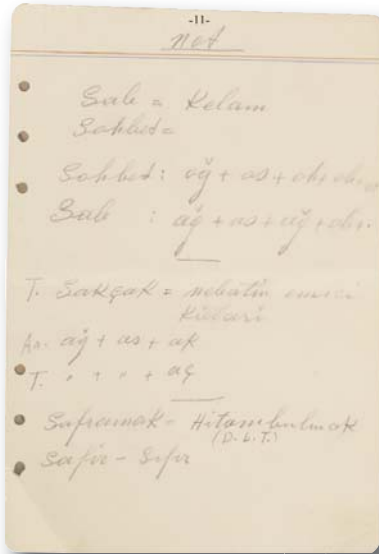 -11-
not
Sab = Kelam
Sohbet =
Sohbet : oğ + os + oh +
Sab : ağ + as + ağ +
T. Sakçak = nebatın
Ar. ağ + as + ak
T. " + " + aç
Saframak = Hitam bulmak
(D.L.T.)
Safir - Sıfır